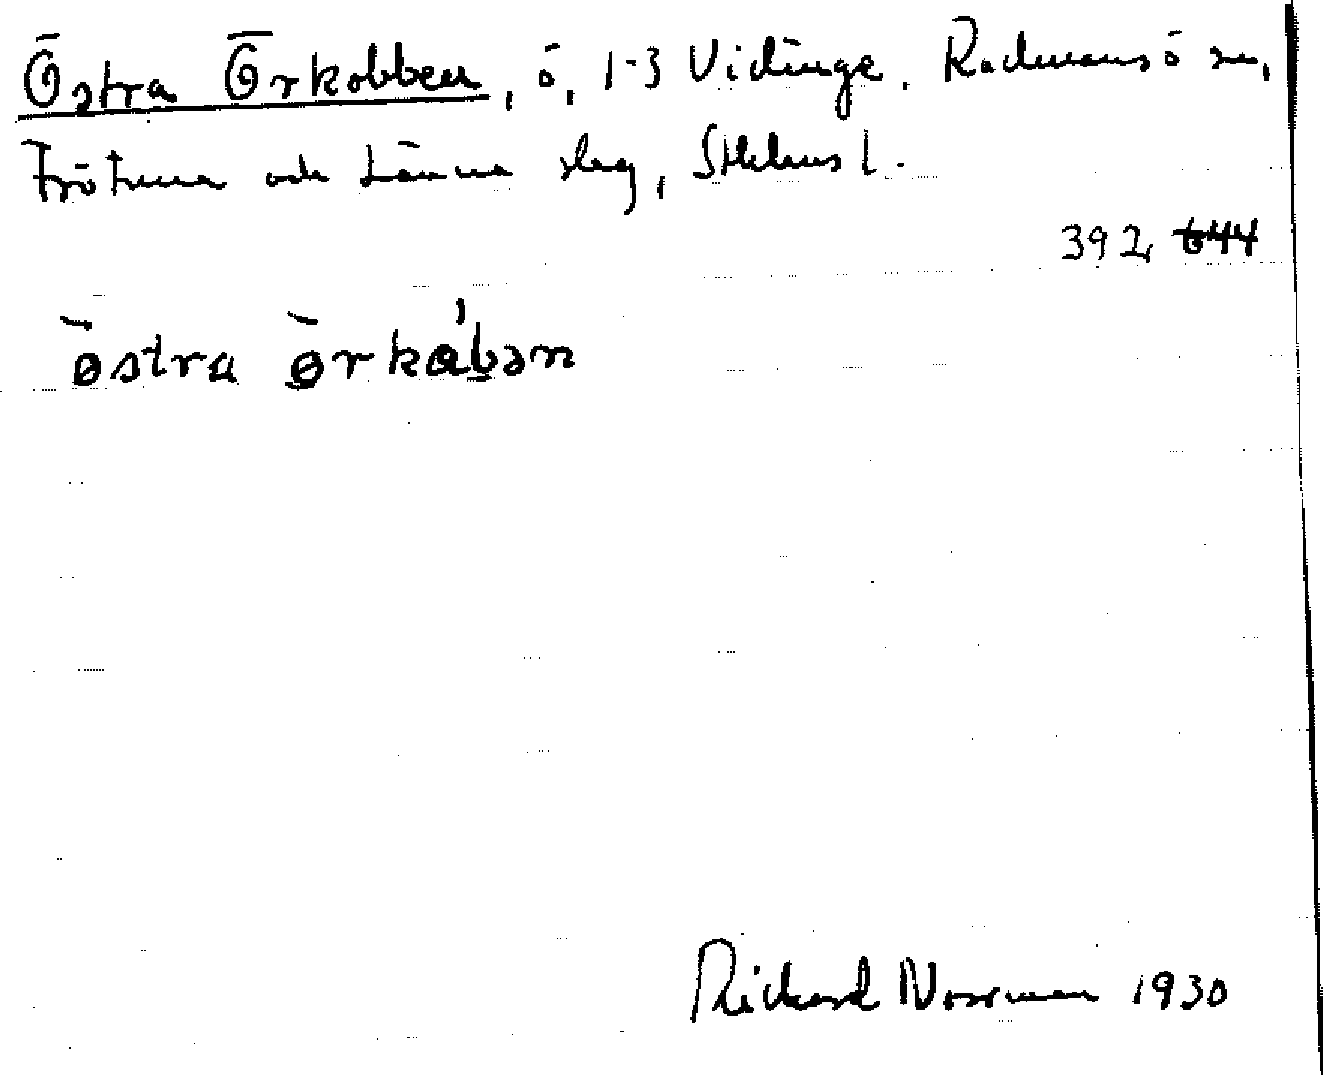 Östra Örkobben, ö, 1-3 Vidinge. Radmansö sn,
Frötuna och Länna slag, Sthlms l.
392 644
östra örkåbən
Rickard Norrman 1930